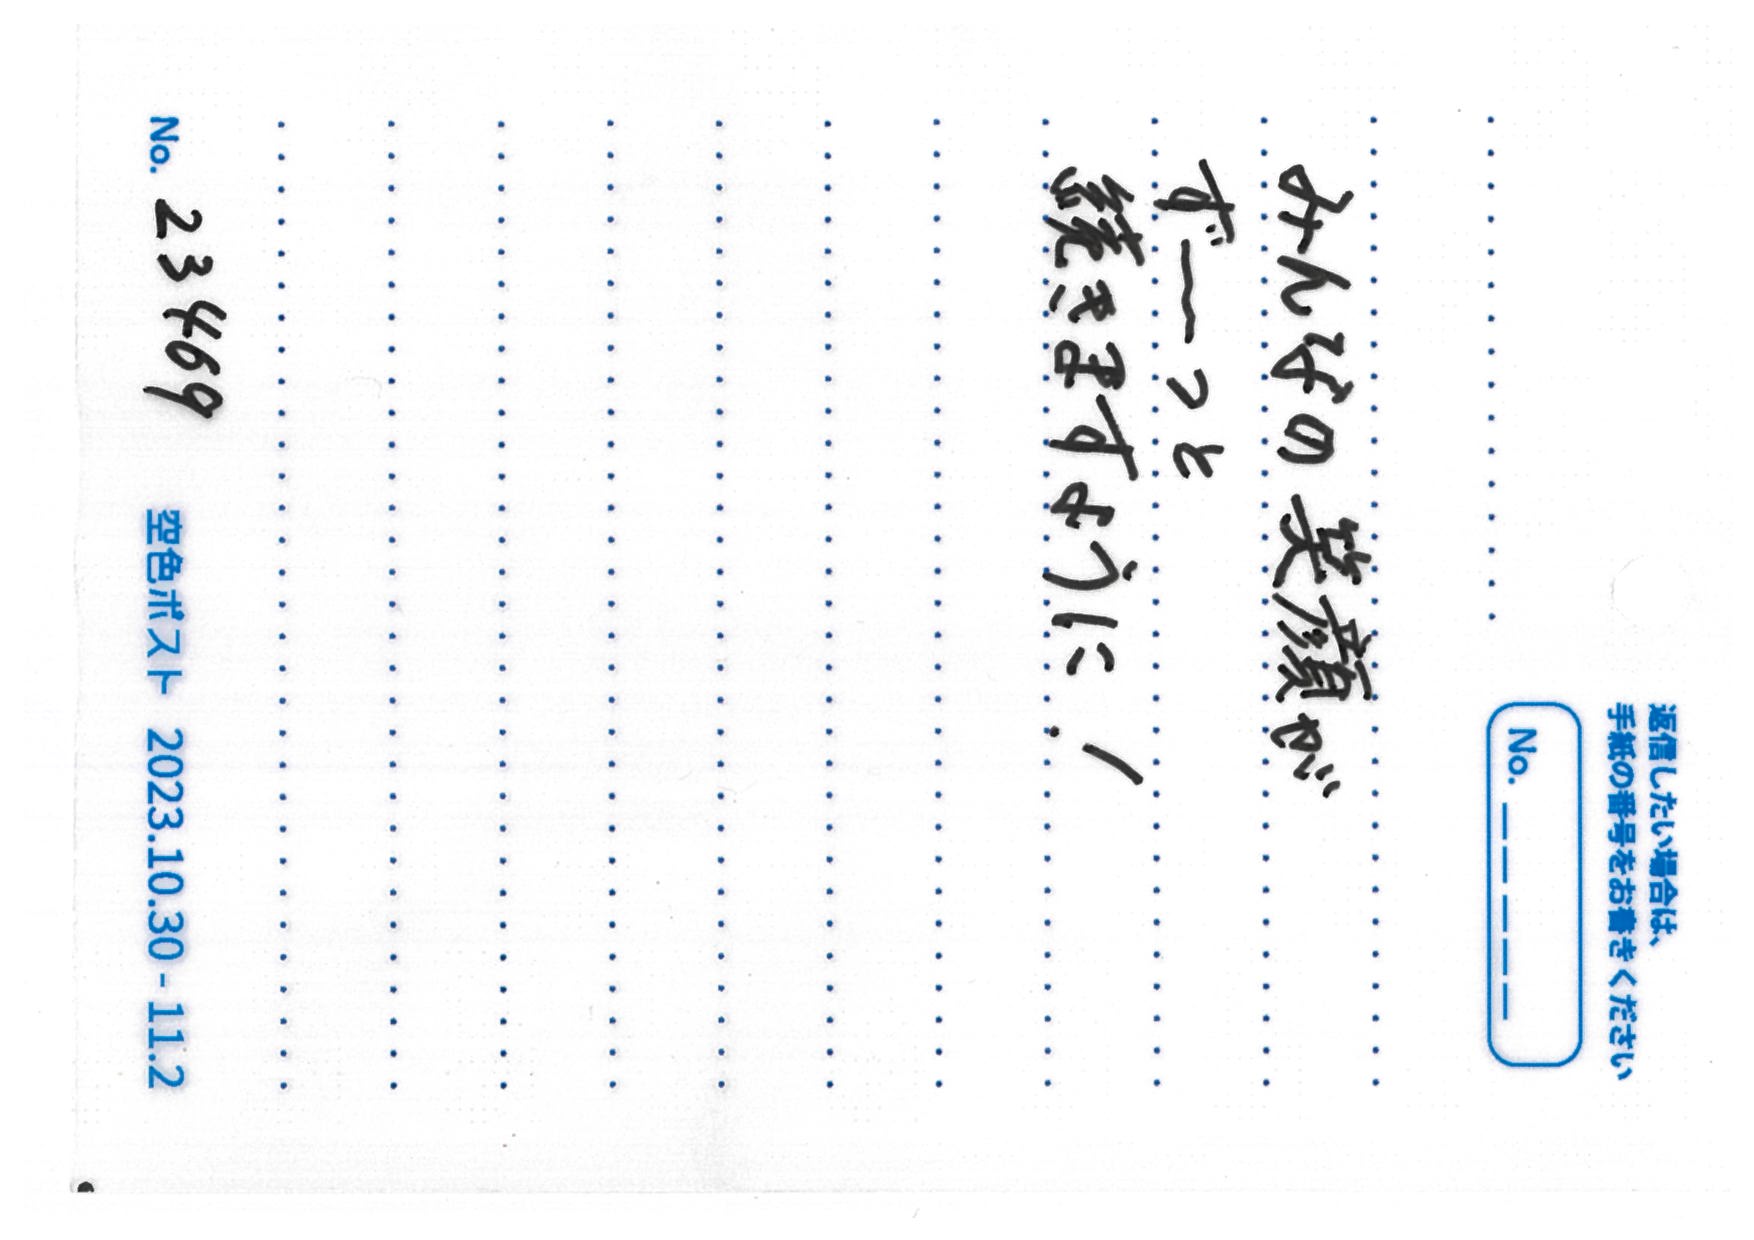 返信したい場合は、
手紙の番号をお書きください
No. _ _ _ _ _
みんなの笑顔が
ず〜っと
続きますように！
No. 23469
空色ポスト 2023.10.30 - 11.2